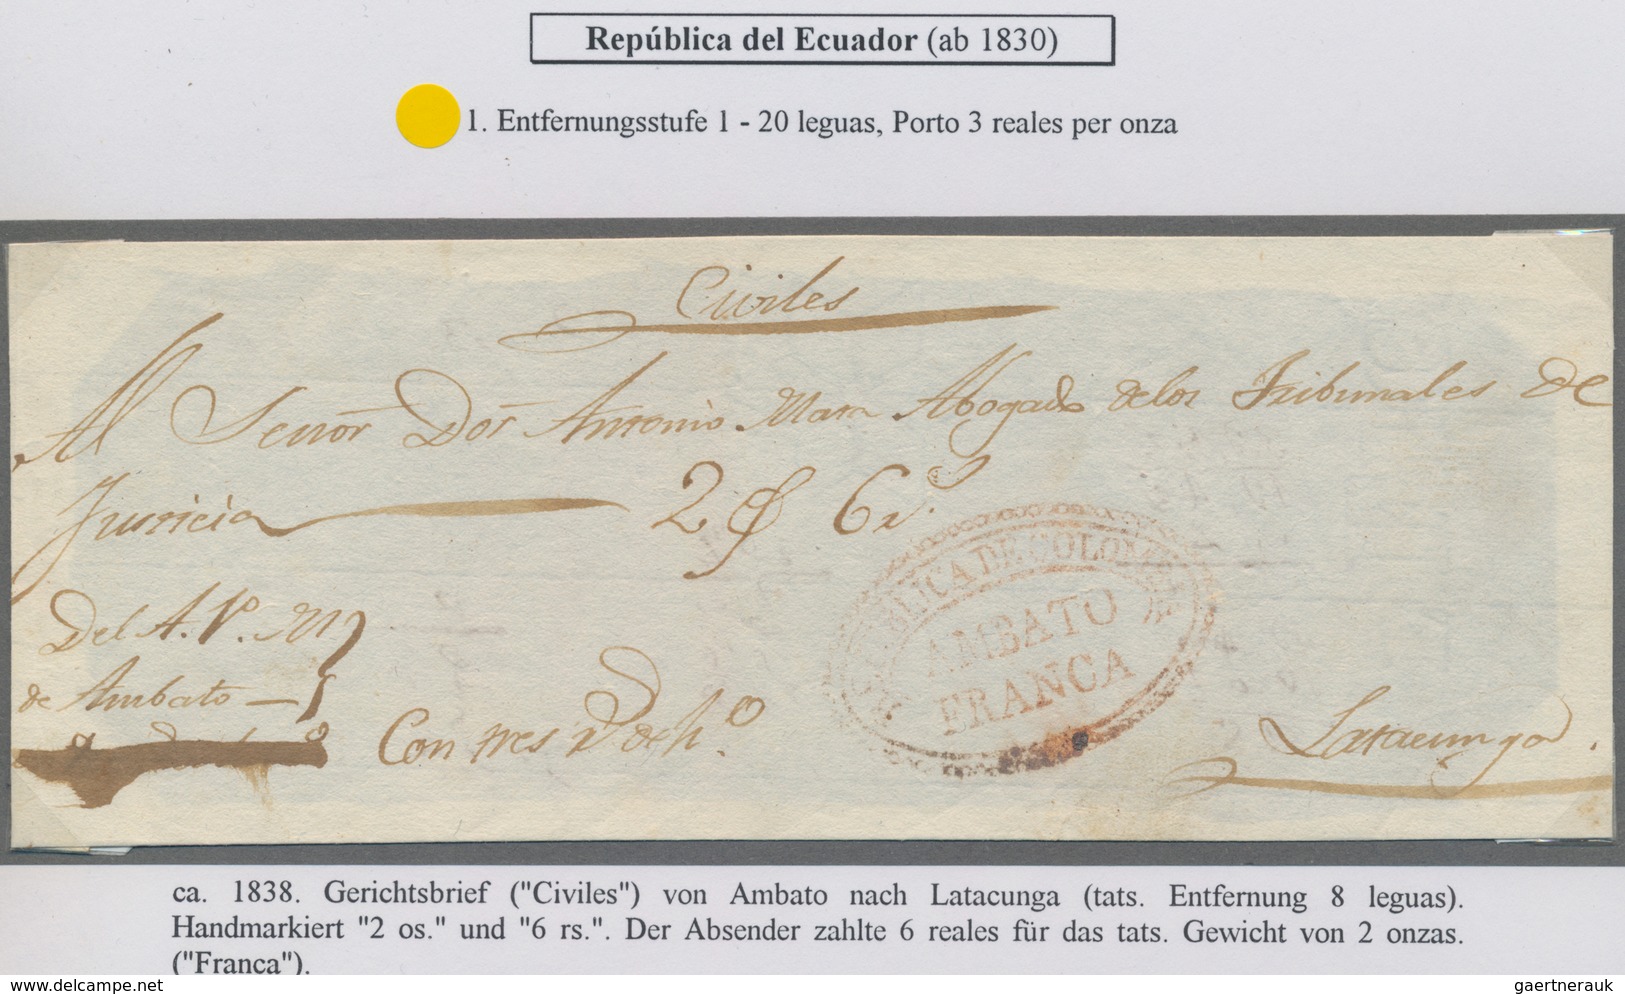 República del Ecuador (ab 1830)
1. Entfernungsstufe 1 - 20 leguas, Porto 3 reales per onza
Civiles
Al Señor Dor Antonio Abogado delos Tribunales de
Justicia 2 6 rs
BLICA DE COLOMBIA
AMBATO
FRANCA
Del A. Po. M
de Ambato
Con tres
Latacunga.
ca. 1838. Gerichtsbrief ("Civiles") von Ambato nach Latacunga (tats. Entfernung 8 leguas).
Handmarkiert "2 os." und "6 rs.". Der Absender zahlte 6 reales für das tats. Gewicht von 2 onzas.
("Franca").
www.delcampe.net
gaertnerauk